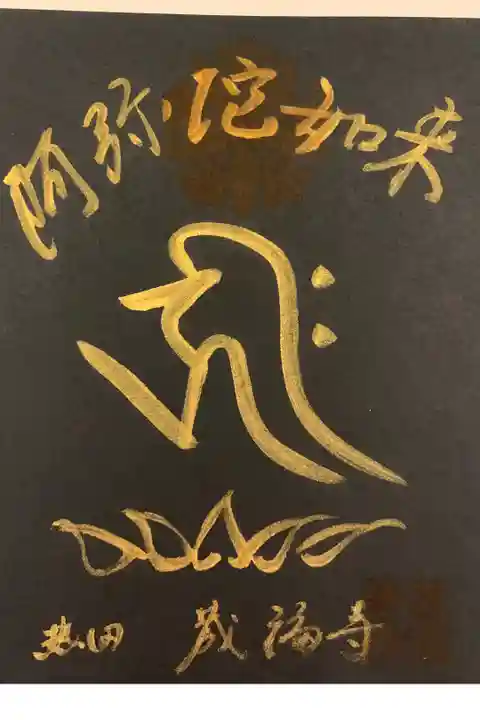 阿弥陀如来
𑖮𑖿𑖨𑖱𑖾
熱田 蔵福寺